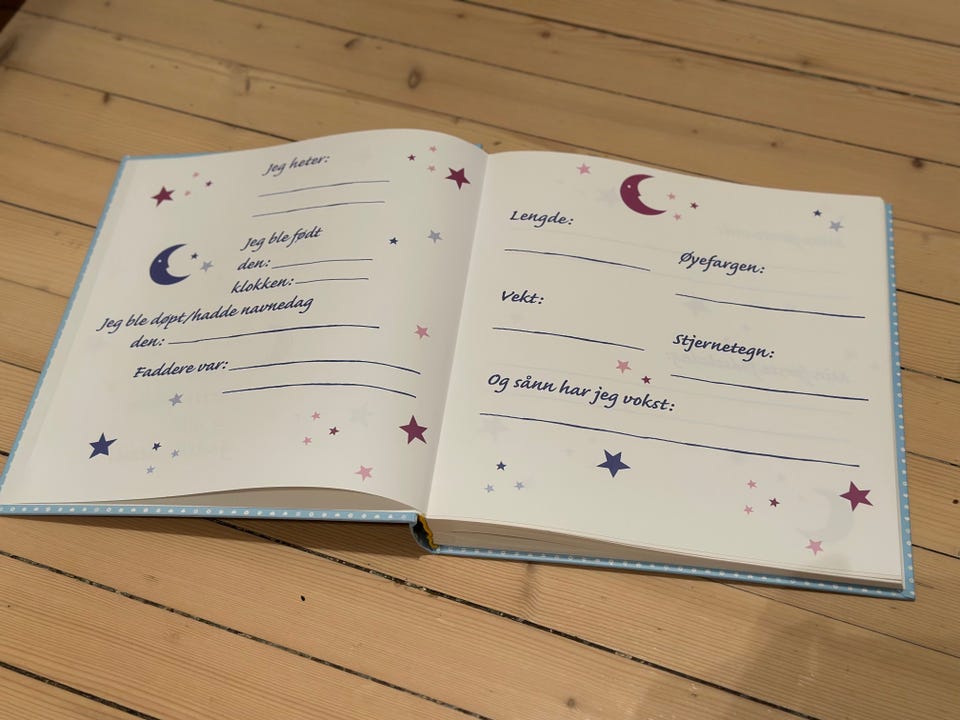 Jeg heter:
Jeg ble født
den:
klokken:
Jeg ble døpt/hadde navnedag
den:
Faddere var:
Lengde:
Øyefargen:
Vekt:
Stjernetegn:
Og sånn har jeg vokst: